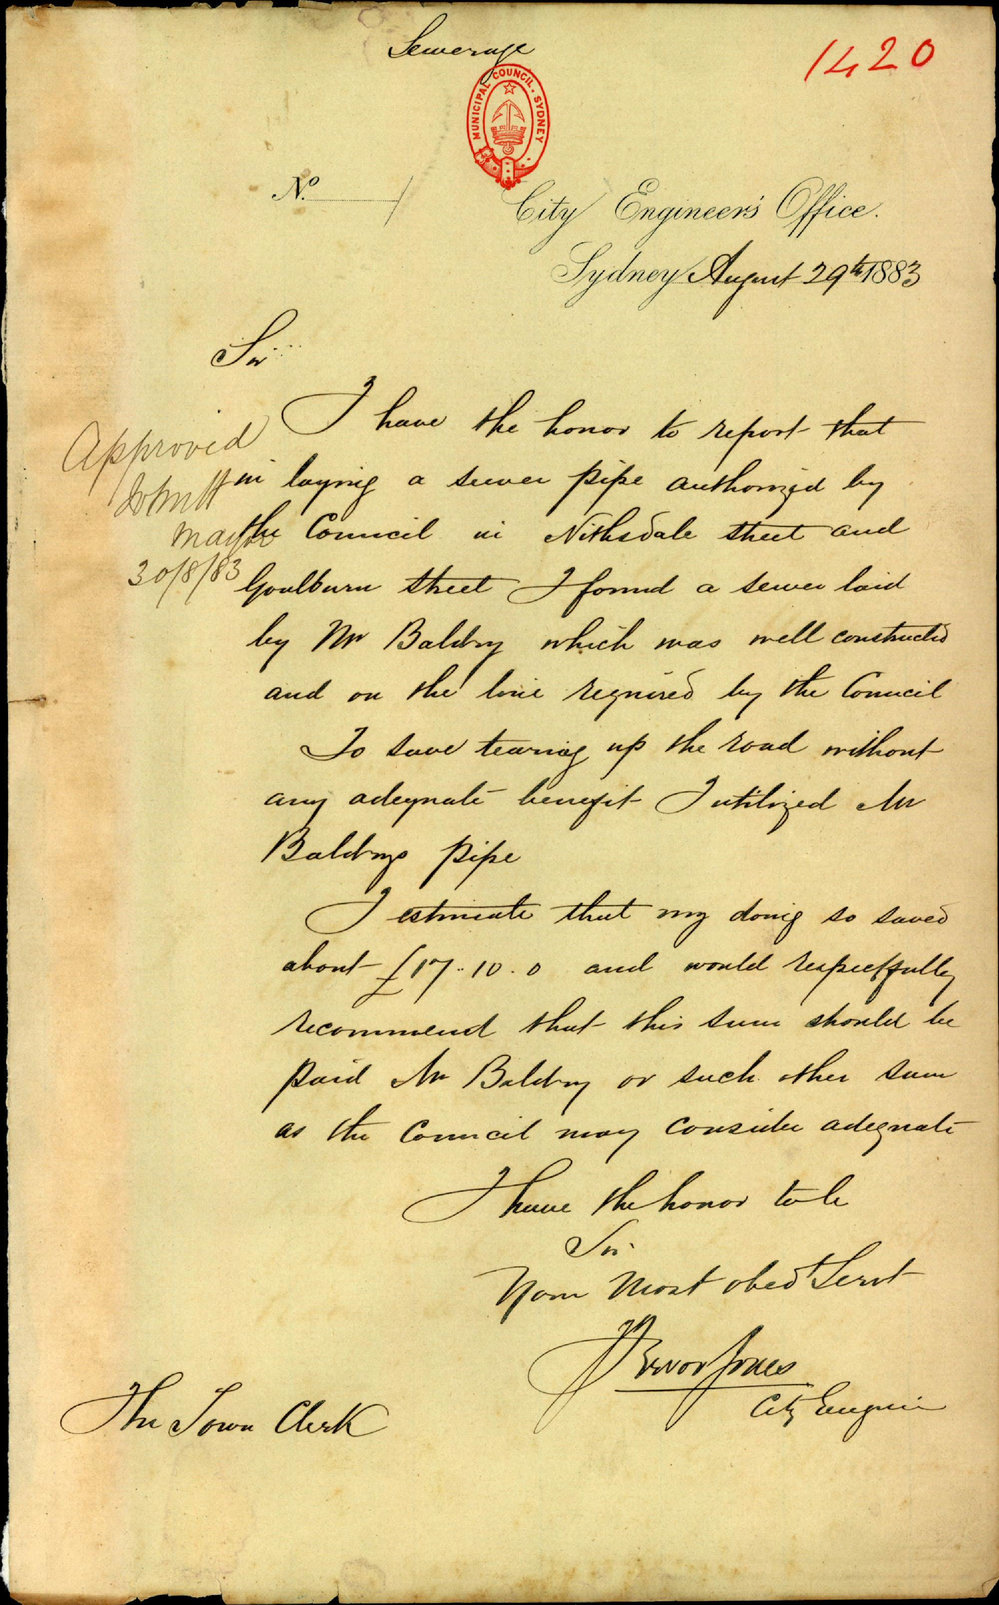 Sewerage
1420
MUNICIPAL COUNCIL. SYDNEY
No.
City Engineer's Office.
Sydney August 29th 1883
Sir
I have the honor to report that
in laying a sewer pipe authorized by
the Council in Nithsdale street and
Goulburn street I found a sewer laid
by Mr Baldry which was well constructed
and on the line required by the Council
To save tearing up the road without
any adequate benefit I utilized Mr
Baldrys pipe
I estimate that my doing so saved
about £17.10.0 and would respectfully
recommend that this sum should be
paid Mr Baldry or such other sum
as the Council may consider adequate
I have the honor to be
Sir
Your Most obedt Servt
Trevor Jones
City Engineer
The Town Clerk
Approved
Mayor
30/8/83